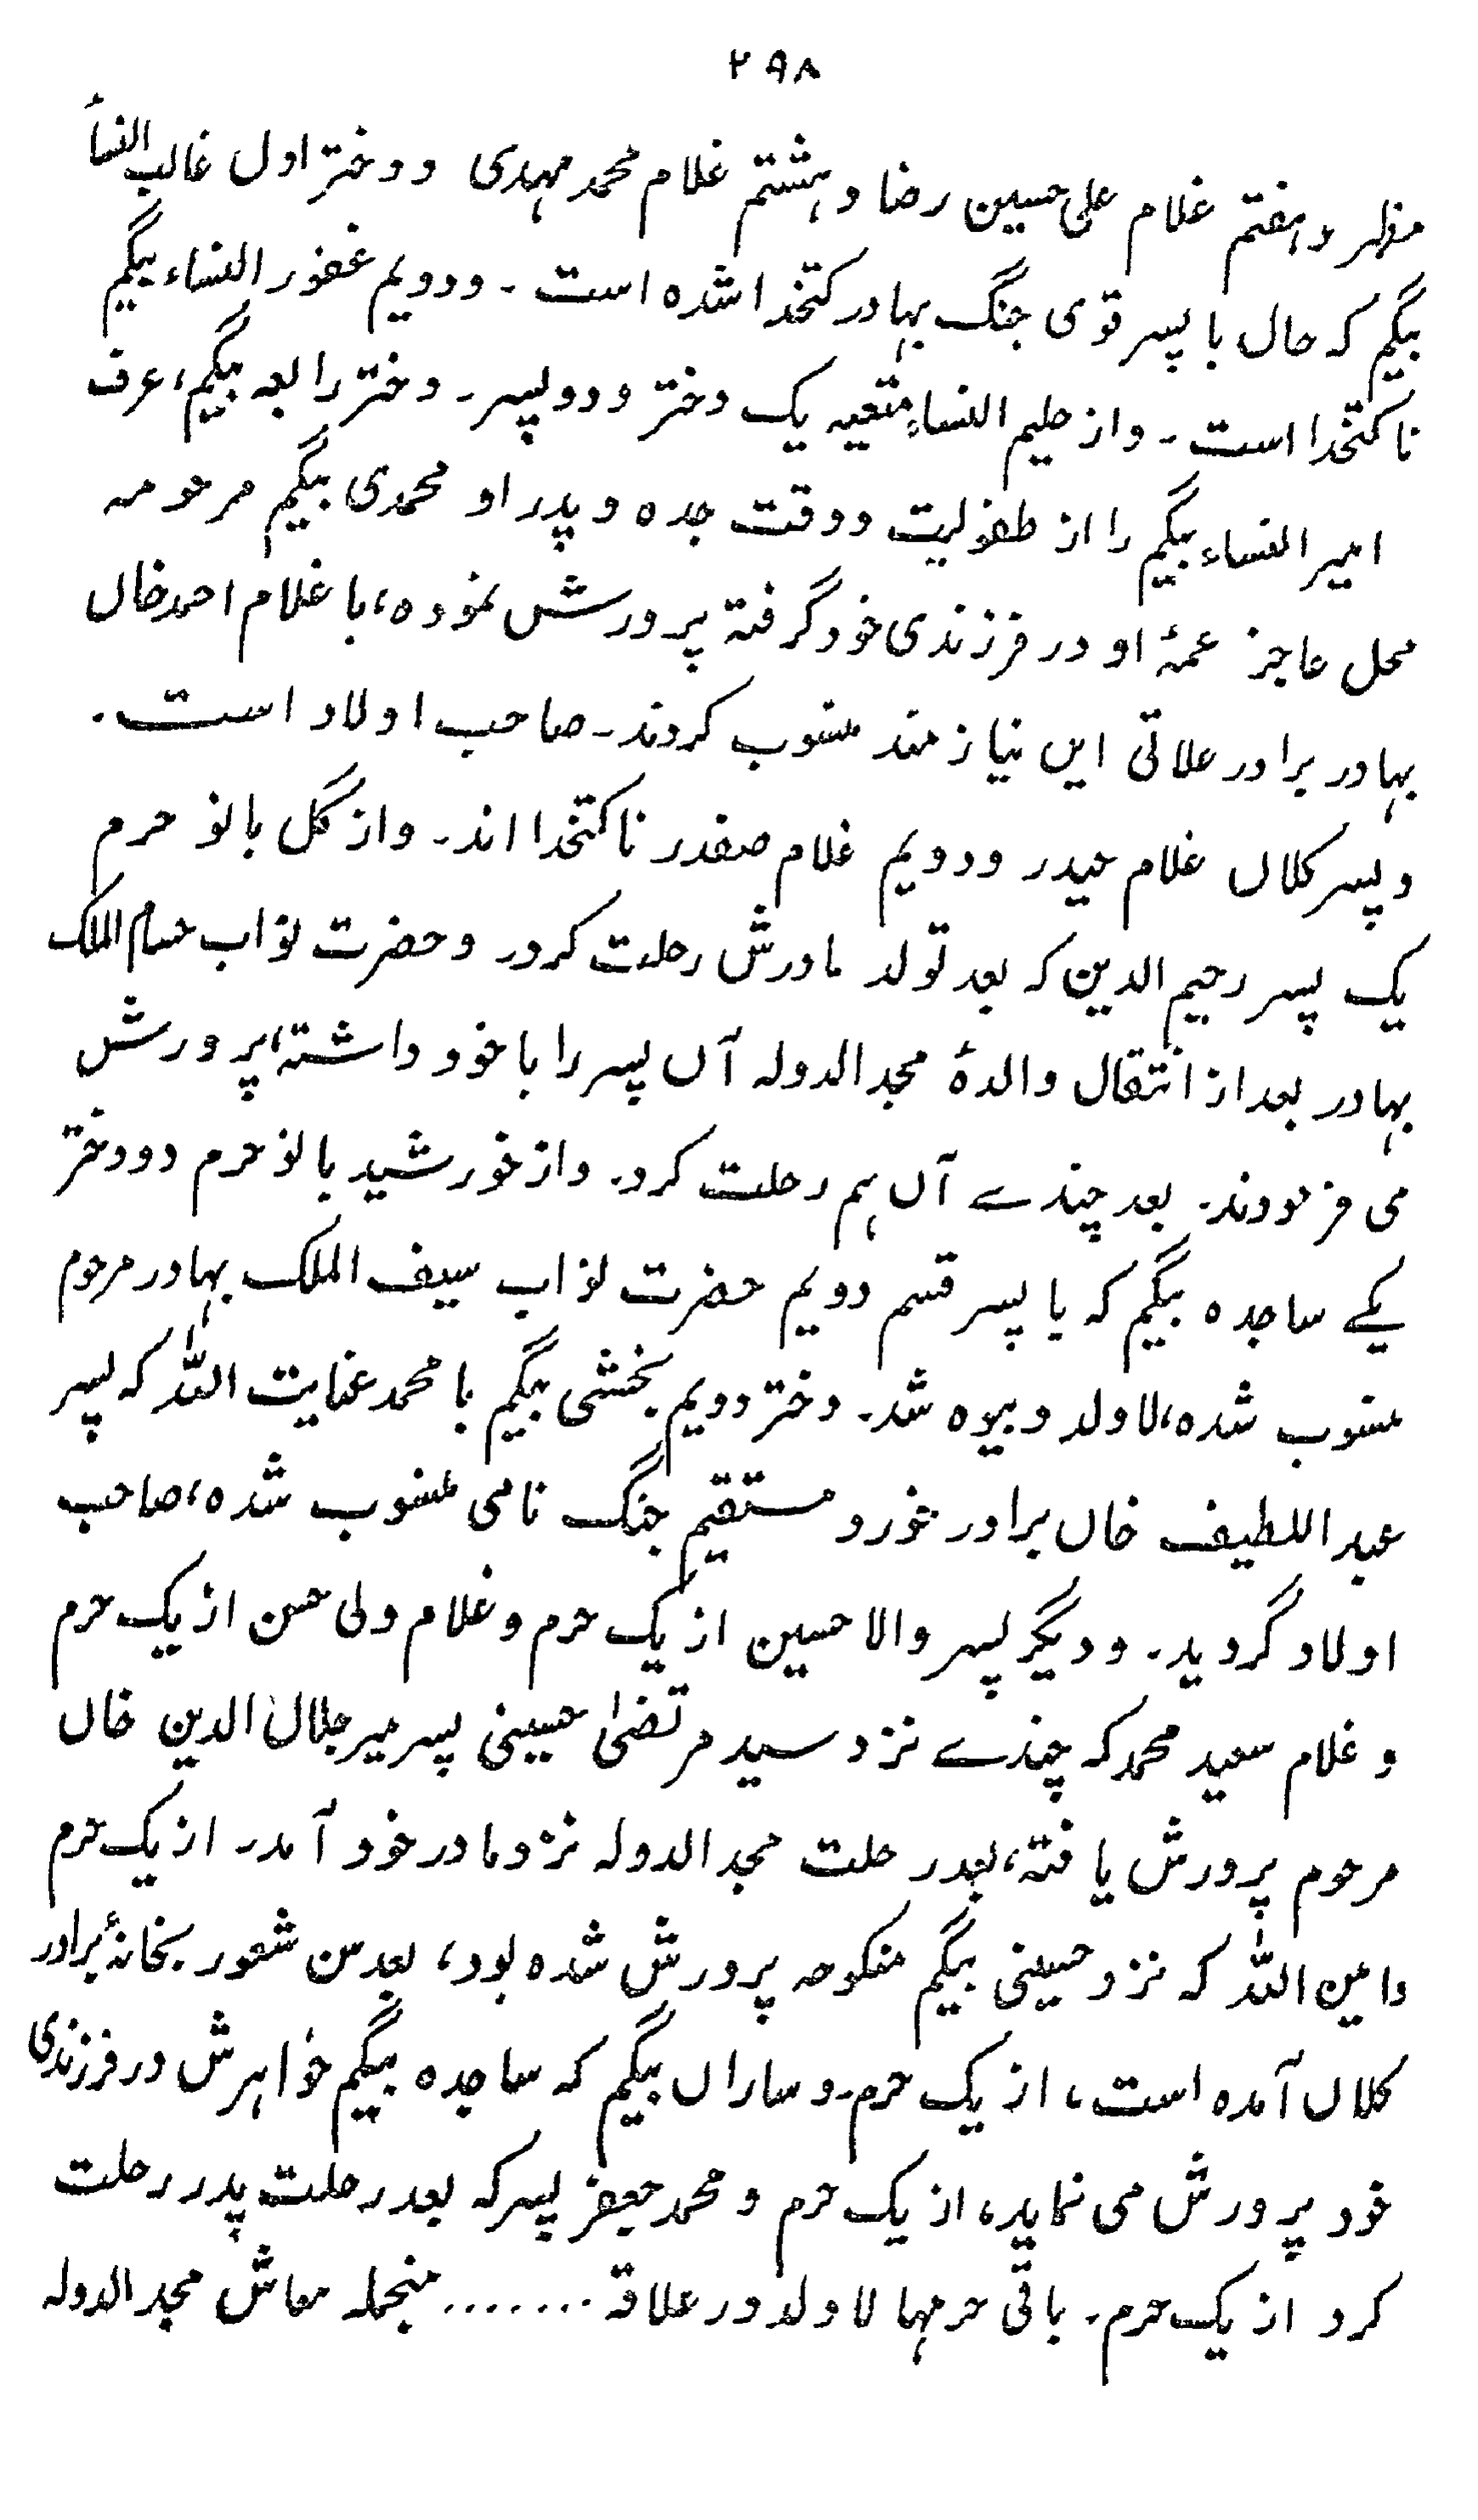 ۲۹۸
مظہر وہفتم غلام علی حسین رضا وہشتم غلام محمد مہدی ودختر اول غالب النسأ
بیگم کہ حال با پسر قوی جنگ بہادر کتخدا شدہ است۔ ودویم غفور النساء بیگم
ناکتخدا است۔ واز حلیم النساء متعیہ یک دختر ودو پسر۔ دختر رابعہ بیگم، عرف
امیر النساء بیگم را از طفولیت ووقت جدہ وپدر او محمدی بیگم مرحومہ
محل عاجز عمۂ او در فرزندی خود گرفتہ پرورش نمودہ، با غلام احمد خاں
بہادر برادر علاتی ایں نیازمند منسوب کردند۔ صاحب اولاد است۔
وپسر کلاں غلام حیدر ودویم غلام صفدر ناکتخدا اند۔ واز گل بانو حرم
یک پسر رحیم الدین کہ بعد تولد مادرش رحلت کرد و حضرت نواب حسام الملک
بہادر بعد از انتقال والدۂ مجد الدولہ آں پسر را با خود داشتہ، پرورش
می فرمودند۔ بعد چندے آں ہم رحلت کرد۔ واز خورشید بانو حرم دو دختر
یکے ساجدہ بیگم کہ با پسر قسم دویم حضرت نواب سیف الملک بہادر مرحوم
منسوب شدہ، لاولد وبیوہ شد۔ دختر دویم بخشی بیگم با محمد عنایت اللہ کہ پسر
عبد اللطیف خاں برادر خورد مستقیم جنگ نامی منسوب شدہ، صاحب
اولاد گردید۔ ودیگر پسر والا حسین از یک حرم وغلام ولی حسن از یک حرم
و غلام سعید محمد کہ چندے نزد سید مرتضیٰ حسینی پسر میر جلال الدین خاں
مرحوم پرورش یافتہ، بعد رحلت مجد الدولہ نزد مادر خود آمد، از یک حرم
وامین اللہ کہ نزد حسینی بیگم منکوحہ پرورش شدہ بود، بعد سن شعور بخانۂ برادر
کلاں آمدہ است، از یک حرم۔ وساراں بیگم کہ ساجدہ بیگم خواہرش در فرزندی
خود پرورش می نماید، از یک حرم و محمد جعفر پسر کہ بعد رحلت پدر رحلت
کرد از یک حرم۔ باقی حرمہا لاولد در علاقہ ....... منجملہ معاش مجد الدولہ